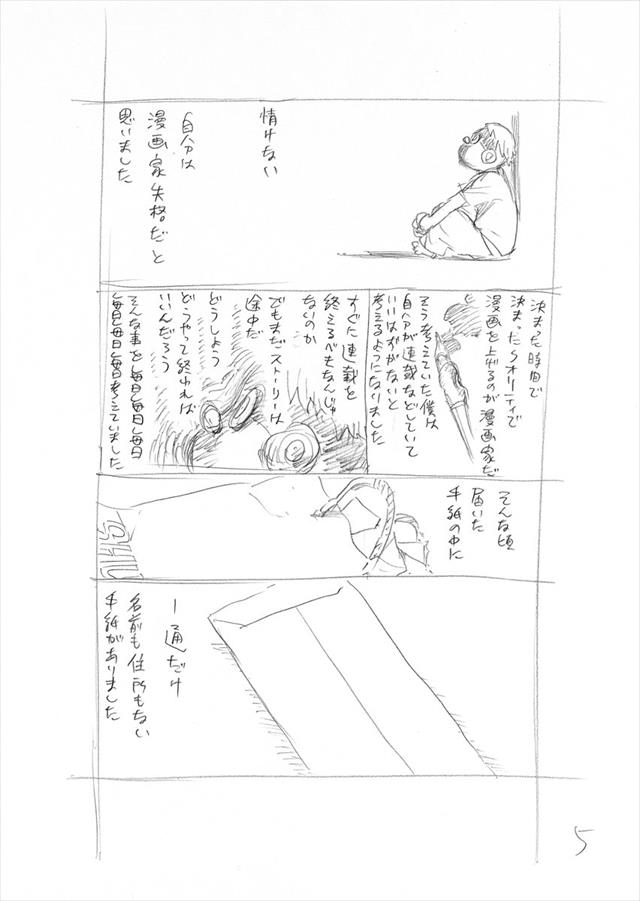 情けない
自分は
漫画家失格だと
思いました
決まった時間で
決まったクオリティで
漫画を上げるのが漫画家だ
そう考えていた僕は
自分が連載などしていて
いいはずがないと
考えるようになりました
すぐに連載を
終えるべきなんじゃ
ないのか
でもまだストーリーは
途中だ
どうしよう
どうやって終われば
いいんだろう
そんな事を毎日毎日
毎日毎日毎日考えていました
そんな頃
届いた
手紙の中に
一通だけ
名前も住所もない
手紙がありました
5